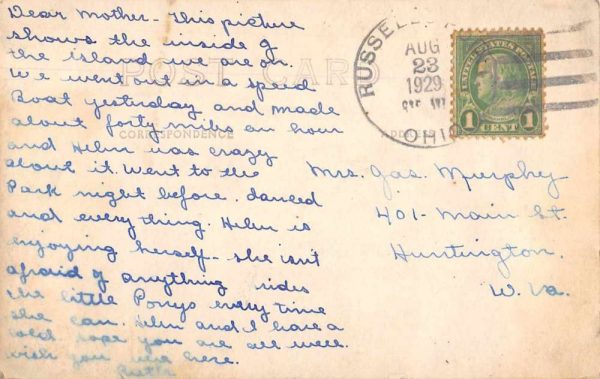 Dear Mother - This picture
shows the inside of
the island we are on.
We went out in a speed
Boat yesterday and made
about forty miles an hour
and Helen was crazy
about it. Went to the
Park night before. danced
and everything. Helen is
enjoying herself - she isn't
afraid of anything rides
the little Ponys every time
she can. Helen and I have a
cold. hope you are all well.
wish you were here.
Ruth
POST CARD
CORRESPONDENCE
ADDRESS
AUG
23
1929
OHIO
UNITED STATES POSTAGE
1 CENT 1
Mrs. Jas. Murphy
401 - Main St.
Huntington.
W. Va.